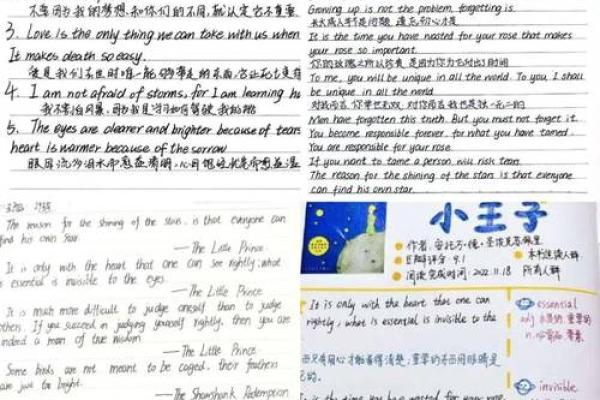 不要因为我的梦想和你们的不同,就认定它不重要.
3. Love is the only thing we can take with us when
It makes death so easy.
4. I am not afraid of storms, for I am learning ho
5. The eyes are clearer and brighter because of tears
heart is warmer because of the sorrow
Growing up is not the problem, forgetting is.
长大成人不是问题 遗忘初心才是
It is the time you have wasted for your rose that makes
your rose so important.
To me, you will be unique in all the world. To you, I shall
be unique in all the world.
Men have forgotten this truth. But you must not forget it.
You become responsible forever for what you have tamed.
You are responsible for your rose.
If you want to tame a person, will risk tear.
The reason for the shining of the stars is that everyone
can find his own star.
The reason for the shining of the stars is that everyone can
find his own star
— The Little Prince.
It is only with the heart that one can see rightly; what
is essential is invisible to the eyes.
— The Little Prince
It is much more difficult to judge oneself than to judge
others. If you succeed in judging yourself rightly, then you are
indeed a man of true wisdom.
— The Little Prince
Some birds are not meant to be caged, their feathers
are just too bright.
— The Shawshank Redemption
小王子
作者:
豆瓣评分:9.1
阅读完成时间:2022.11.18
本书适读人群
所有人群
It is only with the heart that one can
rightly, what is essential is invisible to the
essential
adj
invisible
It is the time you have wasted for your rose